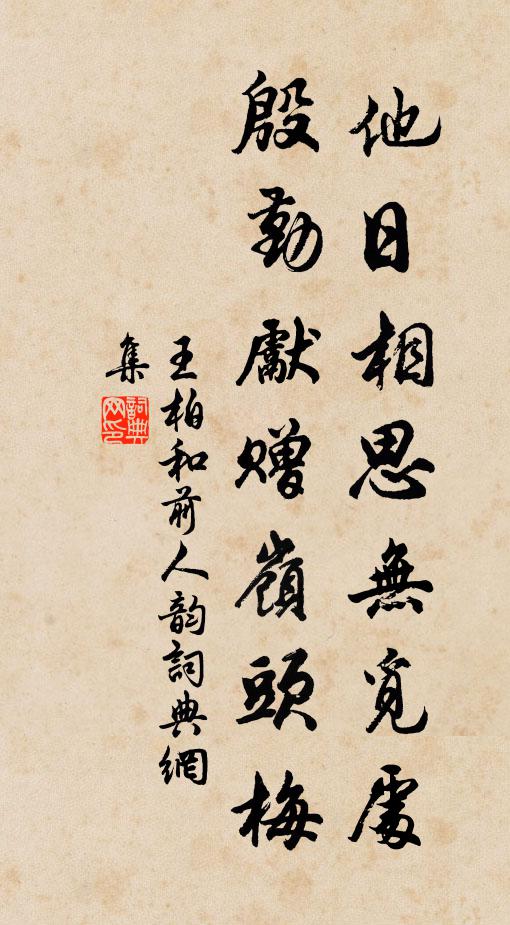 他日相思無覓處
殷勤獻贈嶺頭梅
王柏和前人韵詞典網
集
詞典
网印